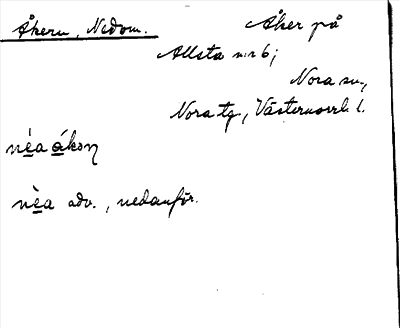 Åkern, Nedom. Åker på
Allsta nr 6;
Nora sn,
Nora tg, Västernorrl. l.
nèa ákₒn
nèa adv., nedanför.